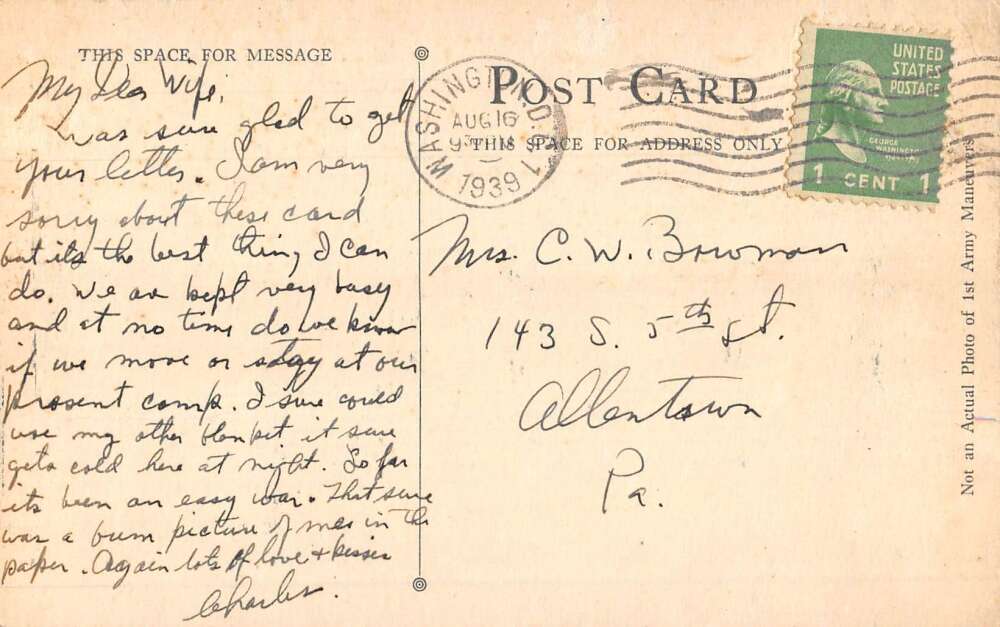 THIS SPACE FOR MESSAGE
My Dear Wife,
was sure glad to get
your letter. I am very
sorry about these card
but its the best thing I can
do. We are kept very busy
and at no time do we know
if we move or stay at our
prosent camp. I sure could
use my other blanket it sure
gets cold here at night. So far
its been an easy war. That sure
was a bum picture of me in the
paper. Again lots of love + kisses
Charles.
WASHINGTON, D.C. 1
AUG 16
1939
POST CARD
THIS SPACE FOR ADDRESS ONLY
UNITED
STATES
POSTAGE
GEORGE
WASHINGTON
1 CENT 1
Mrs. C. W. Bowman
143 S. 5th St.
Allentown
Pa.
Not an Actual Photo of 1st Army Maneuvers